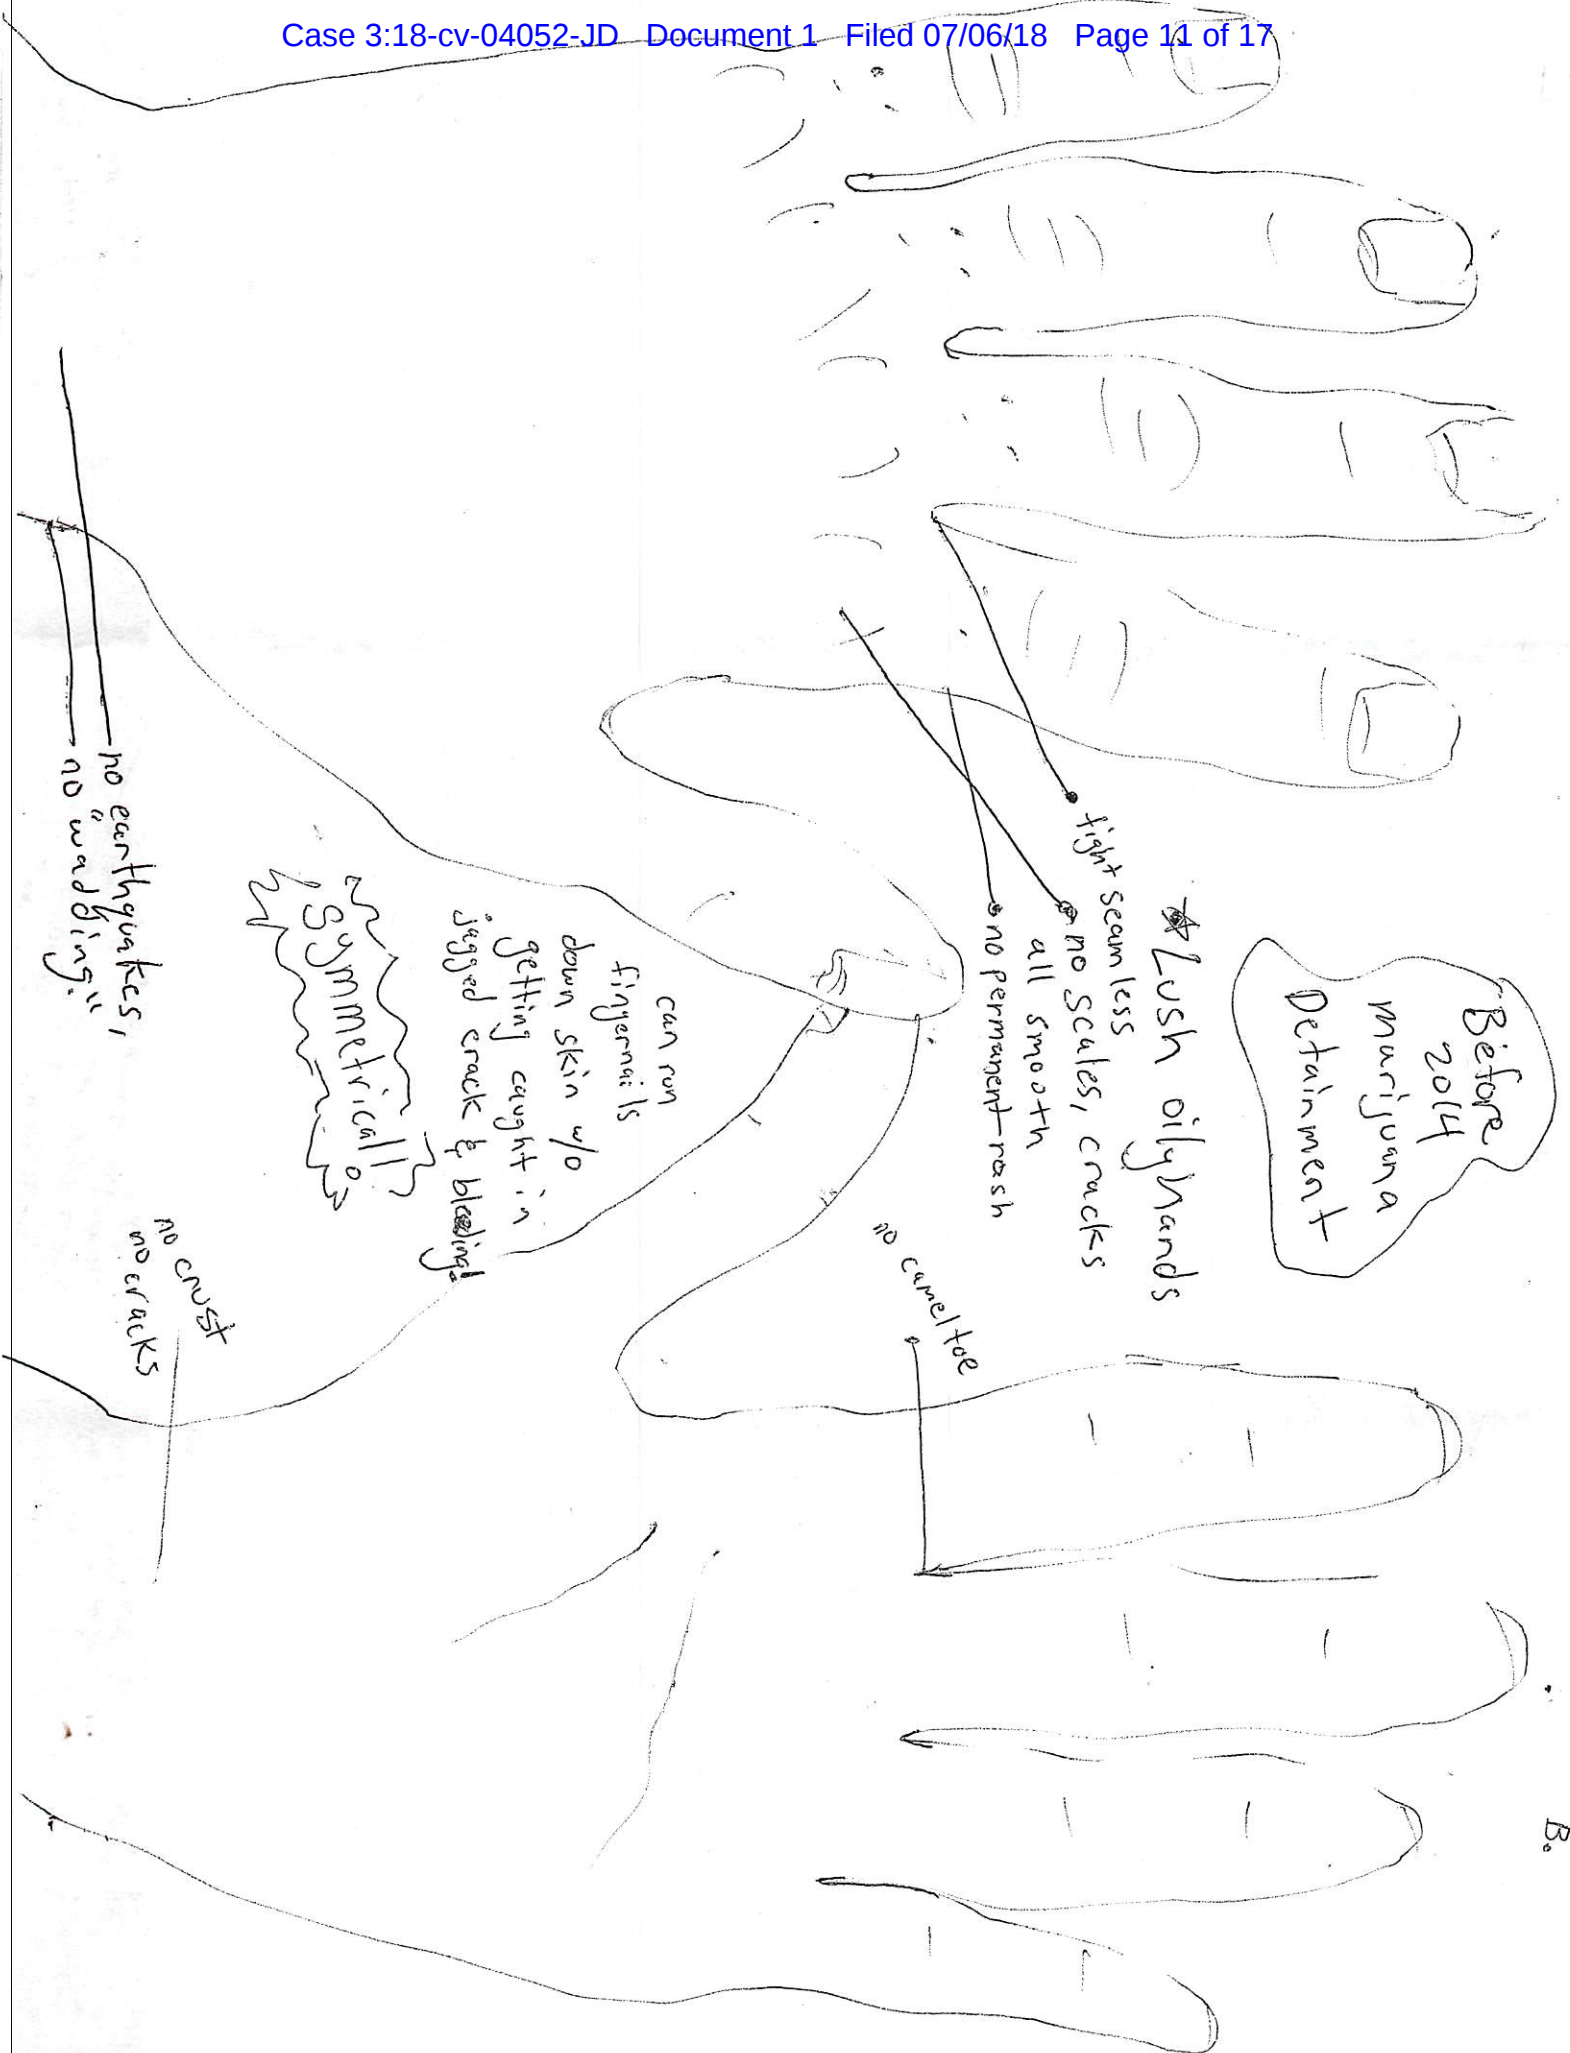 Case 3:18-cv-04052-JD Document 1 Filed 07/06/18 Page 11 of 17
Before
2014
marijuana
Detainment
*Lush oily hands
tight seamless
no scales, cracks
all smooth
no permanent rash
no cameltoe
can run
fingernails
down skin w/o
getting caught in
jagged crack & bleeding!
Symmetrical!
no crust
no cracks
no earthquakes,
no "wadding."
B.